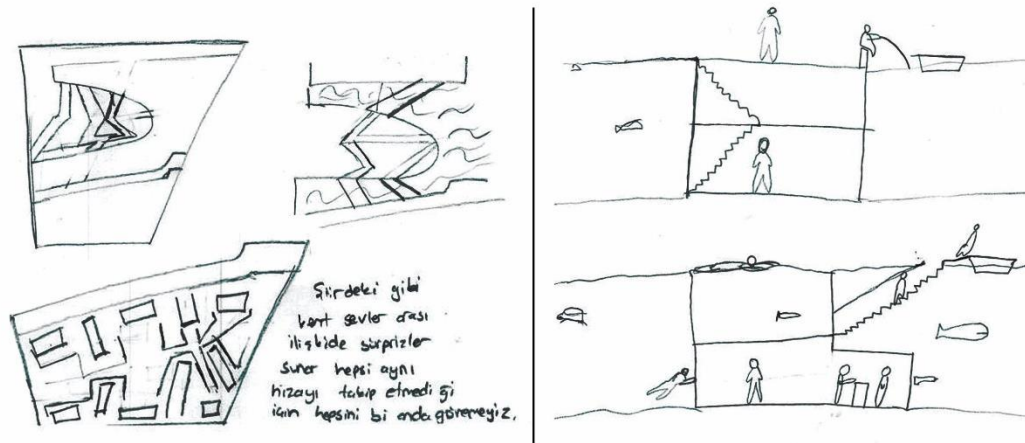 Şiirdeki gibi
kent şevler arası
ilişkide sürprizler
sunar hepsi aynı
hizayı takip etmediği
için hepsini bi anda göremeyiz.